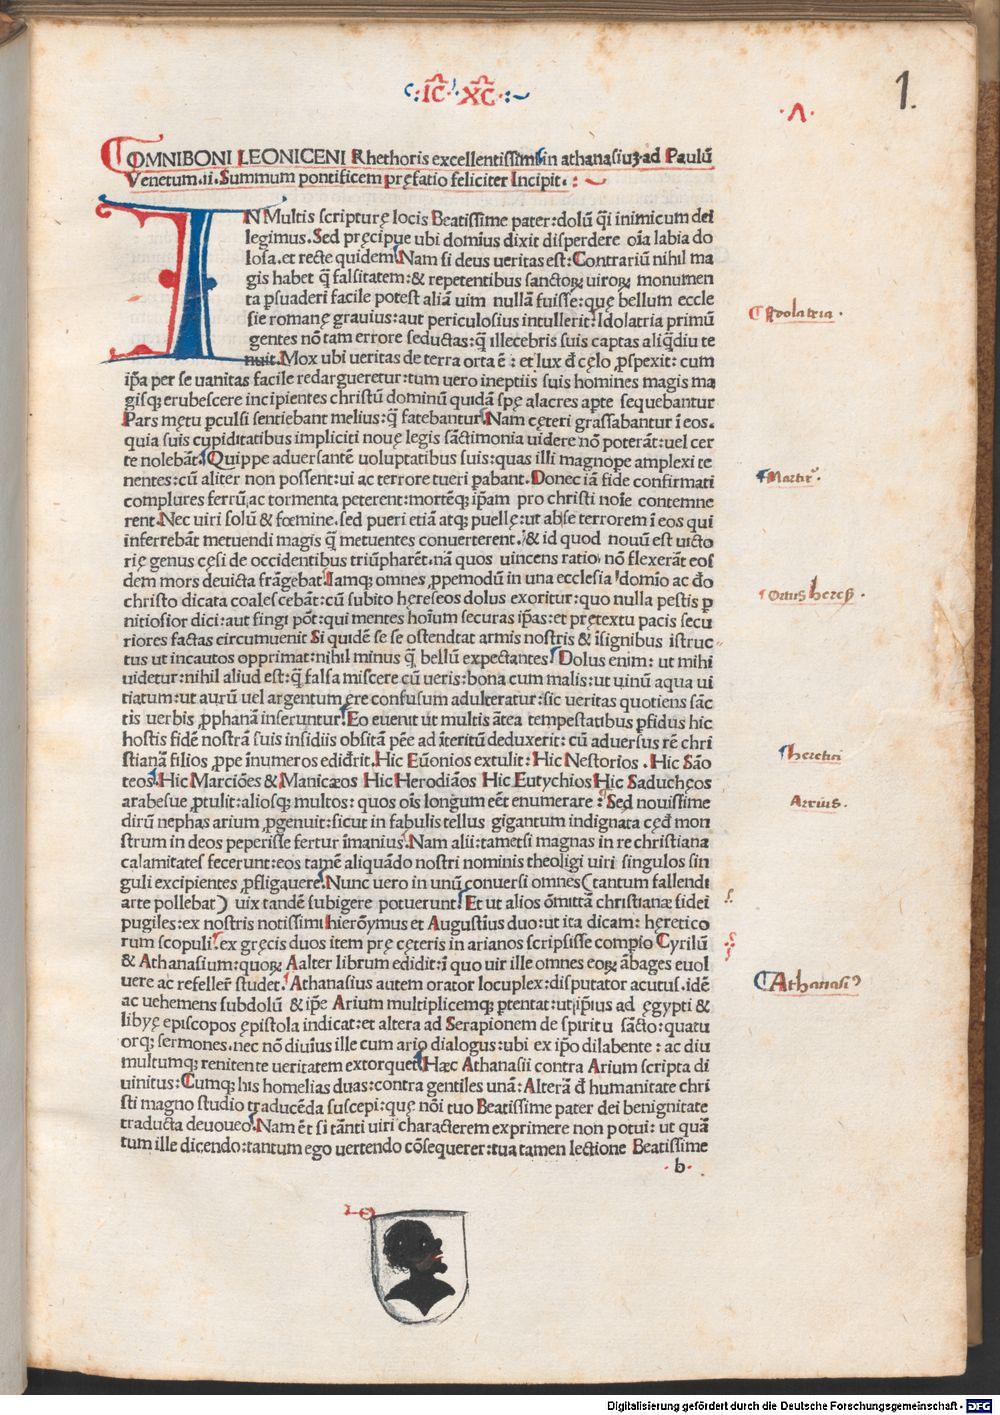 ·:IC̄· XC̄·:~
1.
·A·
OMNIBONI LEONICENI Rhethoris excellentissimi in athanasiuꝫ ad Paulū
Venetum.ii. Summum pontificem pręfatio feliciter Incipit.:~
IN Multis scripturę locis Beatissime pater:dolū q̄i inimicum dei
legimus. Sed pręcipue ubi domīus dixit disperdere oīa labia do
losa.et recte quidem. Nam si deus ueritas est: Contrariū nihil ma
gis habet q̄ falsitatem:& repetentibus sanctoꝝ uiroꝝ monumen
ta ꝑsuaderi facile potest aliā uim nullā fuisse:quę bellum eccle
sie romanę grauius:aut periculosius intullerit: Idolatria primū
gentes nō tam errore seductas:q̄ illecebris suis captas aliq̄diu te
nuit. Mox ubi ueritas de terra orta ē: et lux đ cęlo ꝓspexit: cum
ip̄a per se uanitas facile redargueretur:tum uero ineptiis suis homines magis ma
gisqꝫ erubescere incipientes christū dominū quidā spę alacres aꝑte sequebantur
Pars mętu ꝑculsi sentiebant melius:q̄ fatebantur. Nam cęteri grassabantur ī eos.
quia suis cupiditatibus impliciti nouę legis sāctimonia uidere nō poterāt:uel cer
te nolebāt. Quippe aduersantē uoluptatibus suis:quas illi magnope amplexi te
nentes:cū aliter non possent:ui ac terrore tueri ꝑabant. Donec iā fide confirmati
complures ferrū,ac tormenta peterent:mortēqꝫ ip̄am pro christi noīe contemne
rent. Nec uiri solū & fœmine.sed pueri etiā atqꝫ puellę:ut abse terrorem ī eos qui
inferrebāt metuendi magis q̄ metuentes conuerterent. & id quod nouū est uicto
rię genus cęsi de occidentibus triūpharēt.nā quos uincens ratio nō flexerāt eos
dem mors deuicta frāgebat. Iamqꝫ omnes ꝓpemodū in una ecclesia domīo ac đo
christo dicata coalescebāt:cū subito hęreseos dolus exoritur:quo nulla pestis ꝑ
nitiosior dici:aut fingi pōt:qui mentes hoīum securas ip̄as:et pręტextu pacis secu
riores factas circumuenit Si quidē se se ostendtat armis nostris & īsignibus istruc
tus ut incautos opprimat:nihil minus q̄ bellū expectantes. Dolus enim: ut mihi
uidetur:nihil aliud est:q̄ falsa miscere cū ueris:bona cum malis:ut uinū aqua ui
tiatum:ut aurū uel argentum ęre confusum adulteratur:sic ueritas quotiens sāc
tis uerbis ꝓphanā inseruntur. Eo euenit ut multis ātea tempestatibus ꝑfidus hic
hostis fidē nostrā suis insidiis obsitā pēe ad īteritū deduxerit: cū aduersus rē chri
stianā filios ꝓpe īnumeros ediđrit. Hic Eūonios extulit: Hic Nestorios. Hic Sāo
teos. Hic Marciōes & Manicæos Hic Herodiāos Hic Eutychios Hic Saducheos
arabesue ꝓtulit:aliosqꝫ multos: quos oīs longum eēt enumerare: Sed nouissime
dirū nephas arium ꝓgenuit:sicut in fabulis tellus gigantum indignata cęđ mon
strum in deos peperisse fertur īmanius. Nam alii:tametsi magnas in re christiana
calamitates fecerunt:eos tamē aliquādo nostri nominis theoligi uiri singulos sin
guli excipientes ꝓfligauere. Nunc uero in unū conuersi omnes (tantum fallendi
arte pollebat) uix tandē subigere potuerunt. Et ut alios ōmittā christianæ fidei
pugiles:ex nostris notissimi hierōymus et Augustīus duo:ut ita dicam: hęretico
rum scopuli. ex gręcis duos item prę cęteris in arianos scripsisse comꝑio Cyrilū
& Athanasium:quoꝝ Aalter librum edidit:ī quo uir ille omnes eoꝝ ābages euol
uere ac refellerē studet. Athanasius autem orator locuplex:disputator acutus.idē
ac uehemens subdolū & ip̄e Arium multiplicemqꝫ ꝑtentat:ut ip̄ius ad ęgypti &
libyę episcopos ępistola indicat:et altera ad Serapionem de spiritu sācto:quatu
orqꝫ sermones.nec nō diuīus ille cum ario dialogus:ubi ex ip̄o dilabente: ac diu
multumqꝫ renitente ueritatem extorquet. Hæc Athanasii contra Arium scripta di
uinitus: Cumqꝫ his homelias duas:contra gentiles unā: Alterā đ humanitate chri
sti magno studio traducēda suscepi:quę nōi tuo Beatissime pater dei benignitate
traducta deuoueo. Nam ēt si tāti uiri characterem exprimere non potui: ut quā
tum ille dicendo:tantum ego uertendo cōsequerer:tua tamen lectione Beatissime
·b·
Idolatria.
Martir̄.
Ortus heres.
heretici
Arrius.
Athanasiꝰ
Digitalisierung gefördert durch die Deutsche Forschungsgemeinschaft - DFG